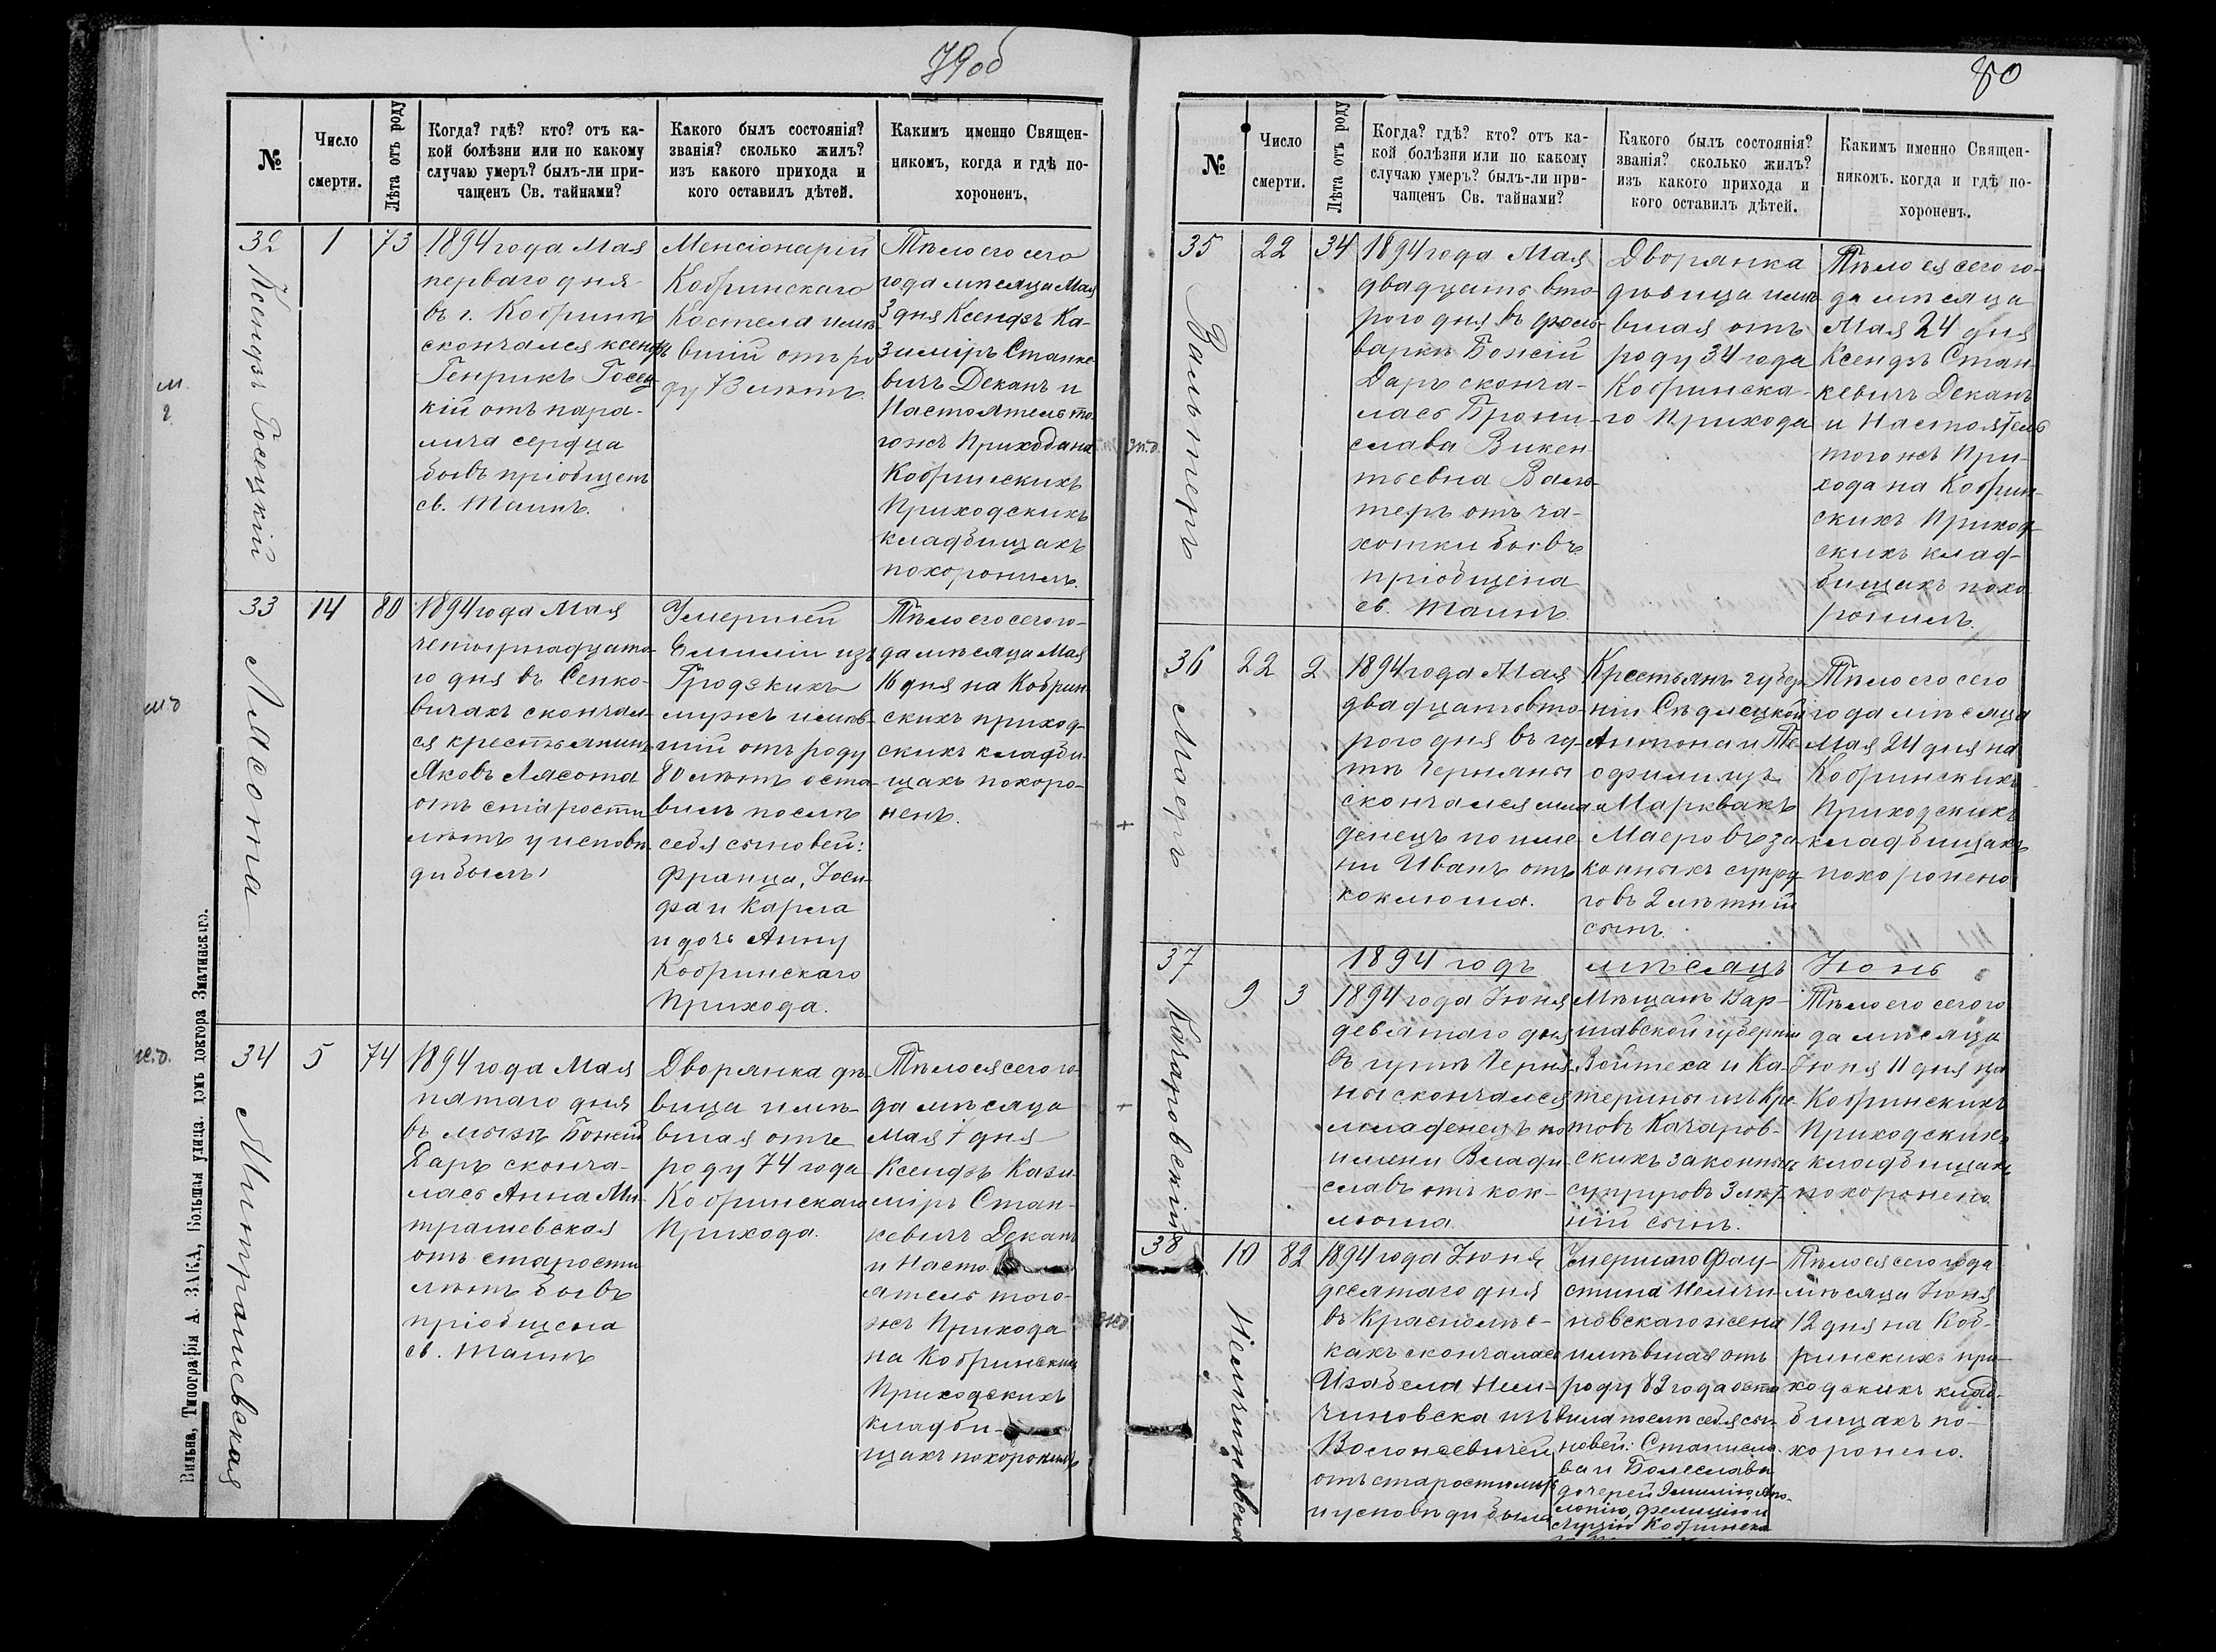 79об
№
Число
смерти.
Лѣта отъ роду
Когда? гдѣ? кто? отъ ка-
кой болѣзни или по какому
случаю умеръ? былъ-ли при-
чащенъ Св. тайнами?
Какого былъ состоянія?
званія? сколько жилъ?
изъ какого прихода и
кого оставилъ дѣтей.
Какимъ именно Священ-
никомъ, когда и гдѣ по-
хороненъ.
32
Ксендзъ Госецкій
1
73
1894 года Мая
перваго дня
въ г. Кобринѣ
скончался ксендзъ
Генрикъ Госец
кій отъ пара-
лича сердца
бывъ пріобщенъ
св. Таинъ.
Менсіонарій
Кобринскаго
Костела имѣ
вшій отъ ро
ду 73 лѣтъ.
Тѣло его сего
года мѣсяца Мая
3 дня Ксендзъ Ка-
зиміръ Станке
вичъ Деканъ и
Настоятель то
гожъ Прихода на
Кобринскихъ
Приходскихъ
кладбищахъ
похоронилъ.
33
Лясота
14
80
1894 года Мая
четырнадцата-
го дня въ Сенко-
вичахъ скончал-
ся крестьянинъ
Яковъ Лясота
отъ старости
лѣтъ у исповѣ
ди былъ
Умершей
Эмиліи изъ
Гродзкихъ
мужъ имѣв-
шій отъ роду
80 лѣтъ оста-
вилъ послѣ
себя сыновей:
Франца, Іоси-
фа и Карла
и дочь Анну
Кобринскаго
Прихода.
Тѣло его сего го-
да мѣсяца Мая
16 дня на Кобрин-
скихъ приход-
скихъ кладби-
щахъ похоро-
ненъ.
34
Митрашевская
5
74
1894 года Мая
пятаго дня
въ мызѣ Божій
Даръ сконча-
лась Анна Ми-
трашевская
отъ старости
лѣтъ бывъ
пріобщена
св. Таинъ
Дворянка дѣ-
вица имѣ-
вшая отъ
роду 74 года
Кобринскаго
Прихода.
Тѣло ея сего го-
да мѣсяца
Мая 7 дня
Ксендзъ Кази-
міръ Стан-
кевичъ Деканъ
и Насто
ятель того-
жъ Прихода
на Кобринскихъ
Приходскихъ
кладби-
щахъ похоронилъ
Вильна, Типографія А. ЗАКА, Большая улица, домъ доктора Змагинскаго.
80
№
Число
смерти.
Лѣта отъ роду
Когда? гдѣ? кто? отъ ка-
кой болѣзни или по какому
случаю умеръ? былъ-ли при-
чащенъ Св. тайнами?
Какого былъ состоянія?
званія? сколько жилъ?
изъ какого прихода и
кого оставилъ дѣтей.
Какимъ именно Священ-
никомъ. когда и гдѣ по-
хороненъ.
35
Вальтеръ
22
34
1894 года Мая
двадцать вто-
рого дня въ фоль-
варкѣ Божій
Даръ сконча-
лась Брони-
слава Викен
тьевна Валь-
теръ отъ ча-
хотки бывъ
пріобщена
св. Таинъ.
Дворянка
дѣвица имѣ-
вшая отъ
роду 34 года
Кобринска-
го Прихода
Тѣло ея сего го-
да мѣсяца
Мая 24 дня
Ксендзъ Стан-
кевичъ Деканъ
и Настоятель
тогожъ При-
хода на Кобрин-
скихъ Приход-
скихъ клад-
бищахъ похо
ронилъ.
36
Маеръ
22
2
1894 года Мая
двадцать вто-
рого дня въ гу-
тѣ Черняны
скончался мла
денецъ по име-
ни Иванъ отъ
коклюша.
Крестьянъ губер
ніи Сѣдлецкой
Антона и Те-
офили изъ
Марквахъ
Маеровъ за-
конныхъ супру-
говъ 2 лѣтній
сынъ.
Тѣло его сего
года мѣсяца
Мая 24 дня на
Кобринскихъ
Приходскихъ
кладбищахъ
похоронено
1894 годъ мѣсяцъ Іюнь
37
Качаровскій
9
3
1894 года Іюня
девятаго дня
въ гутѣ Черня-
ны скончался
младенецъ по
имени Влади
славъ отъ кок-
люша.
Мѣщанъ Вар-
шавской губерніи
Войтеха и Ка-
терины изъ Кре-
товъ Качаров-
скихъ законныхъ
супруговъ 3 лѣт-
ній сынъ.
Тѣло его сего го
да мѣсяца
Іюня 11 дня на
Кобринскихъ
Приходскихъ
кладбищахъ
похоронено
38
Немчиновска
10
82
1894 года Іюня
десятаго дня
въ Краснолѣс-
кахъ скончалась
Изабела Нем-
чиновска изъ
отъ старости лѣтъ
и исповѣди была
Умершаго Фау-
стина Немчи-
новскаго жена
имѣвшая отъ
роду 82 года оста
вила послѣ себя сы-
новей: Станисла-
ва и Болеслава
дочерей Эмилію, Апо-
лонію, Фелицію и
Кобринска
Тѣло ея сего года
мѣсяца Іюня
12 дня на Коб-
ринскихъ при-
ходскихъ клад-
бищахъ по-
хоронено.